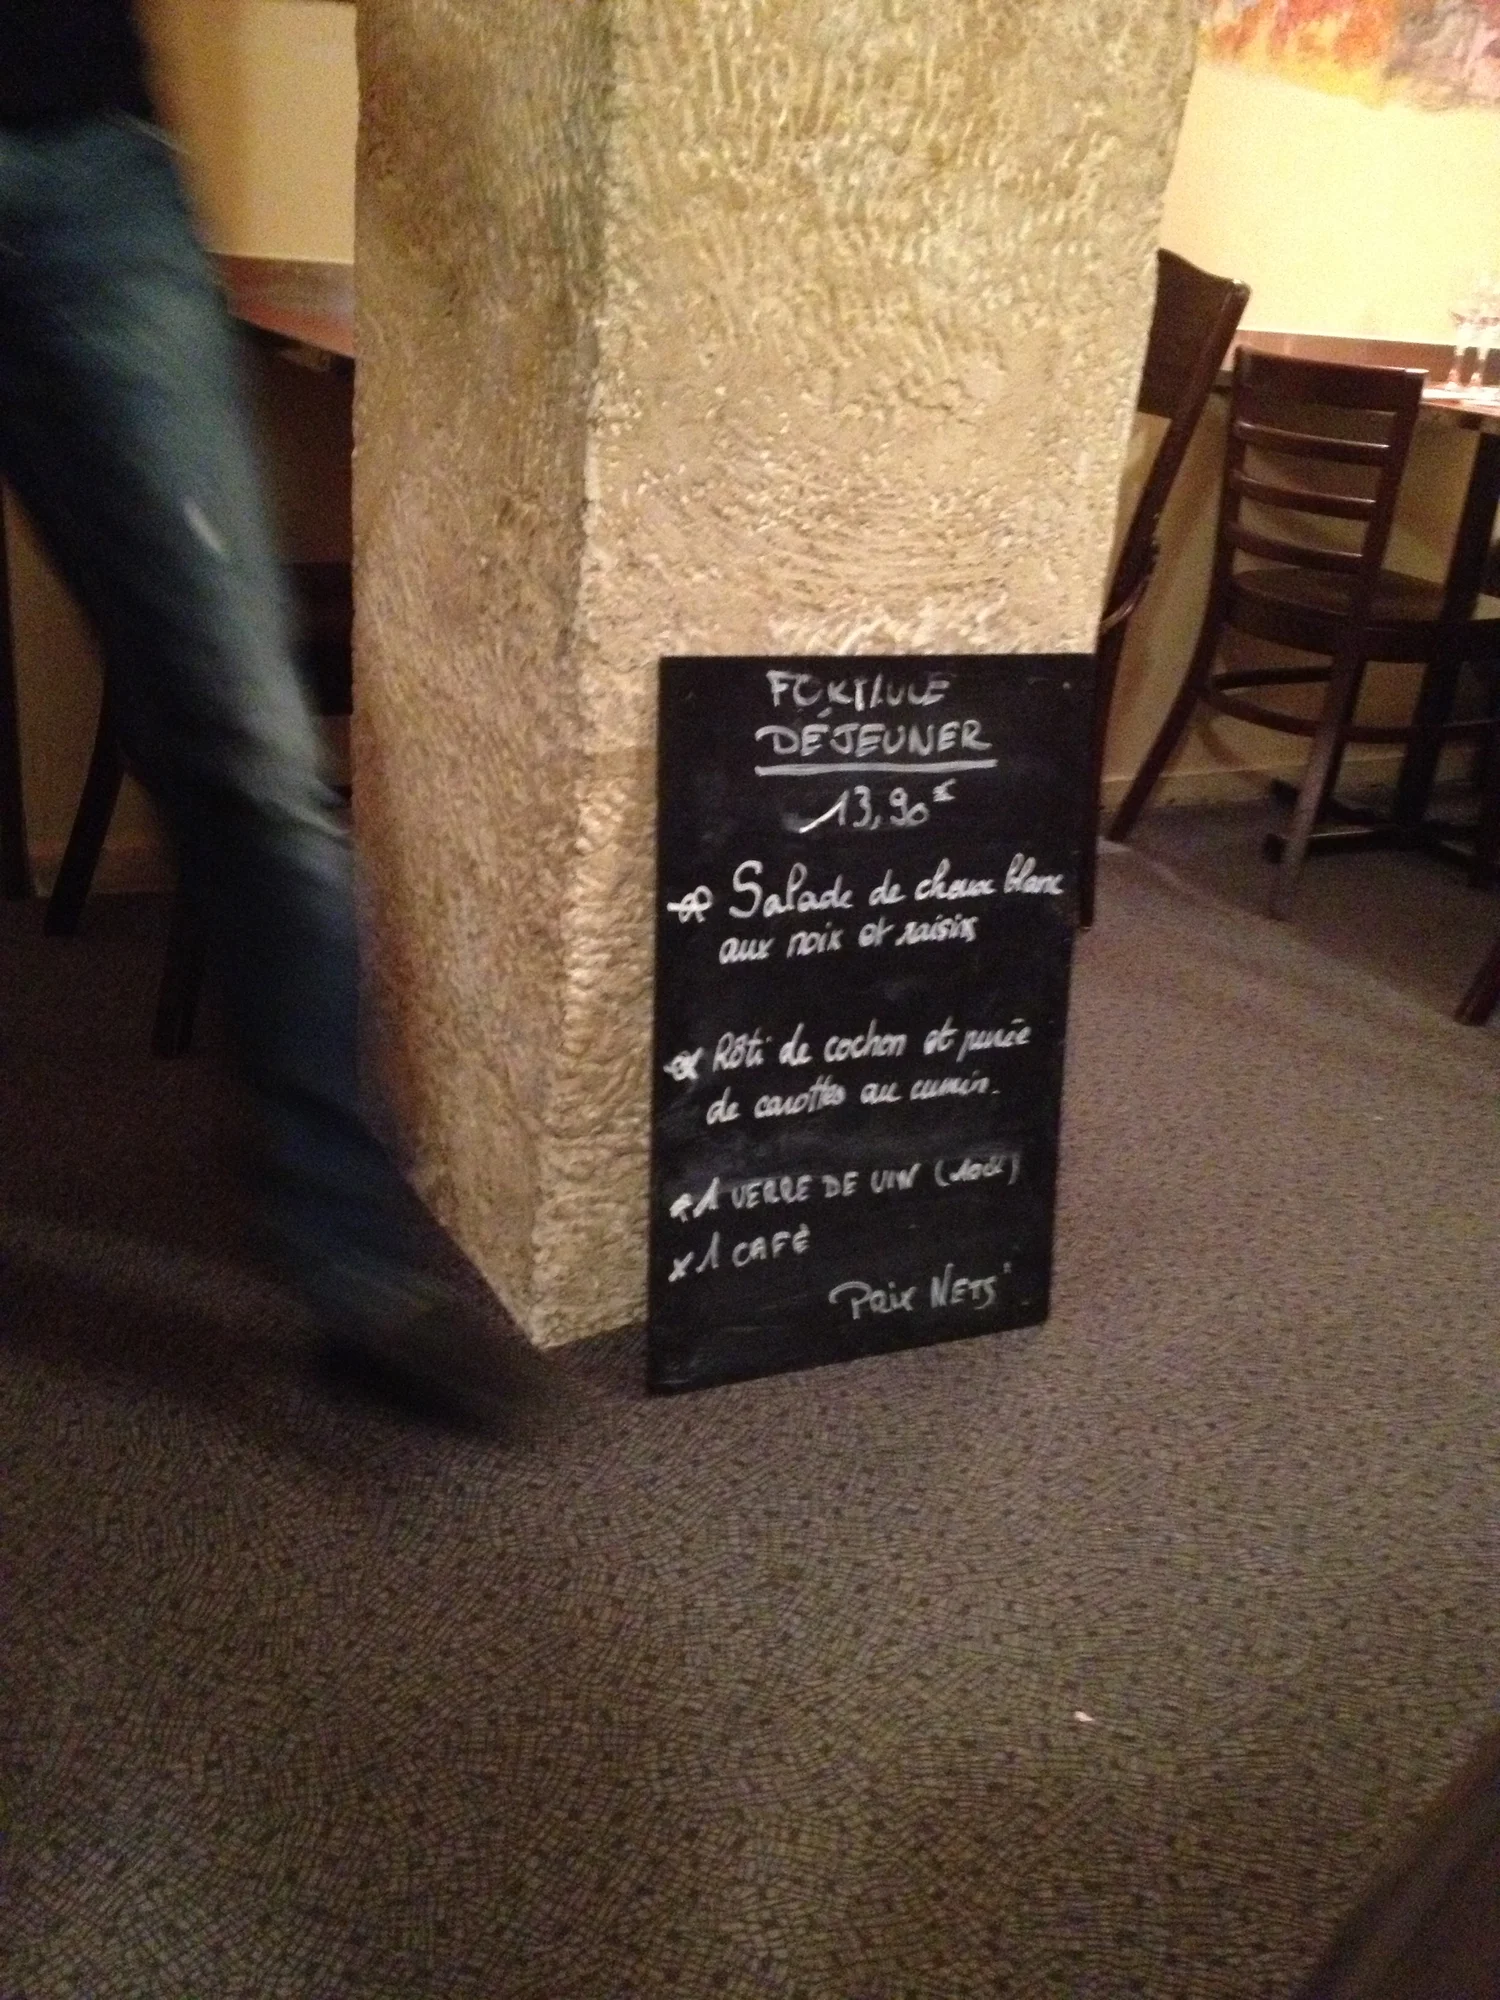 FORMULE
DÉJEUNER
13,90€
Salade de choux blanc
aux noix et raisins
Rôti de cochon et purée
de carottes au cumin.
1 VERRE DE VIN (10cl)
x 1 CAFÉ
Prix NETS